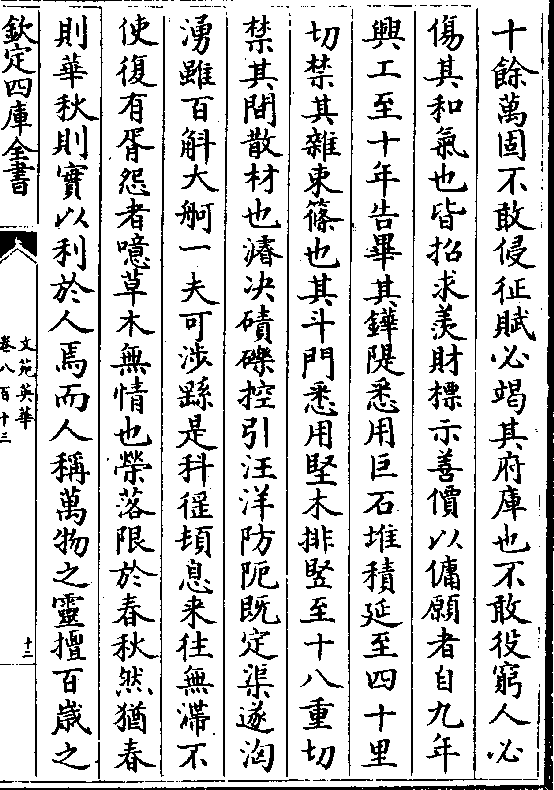 十餘萬固不敢侵征賦必竭其府庫也不敢役窮人必
傷其和氣也皆招求羨財標示善價以傭願者自九年
興工至十年告畢其鏵隄悉用巨石堆積延至四十里
切禁其雜束篠也其斗門悉用堅木排竪至十八重切
禁其間散材也濬决磧礫控引汪洋防阨既定渠遂洶
湧雖百斛大舸一夫可涉繇是科徭頓息来往無滯不
使復有胥怨者噫草木無情也榮落限於春秋然猶春
則華秋則實以利於人焉而人稱萬物之靈擅百歲之
欽定四庫全書
文苑英華
卷八百十三
十二